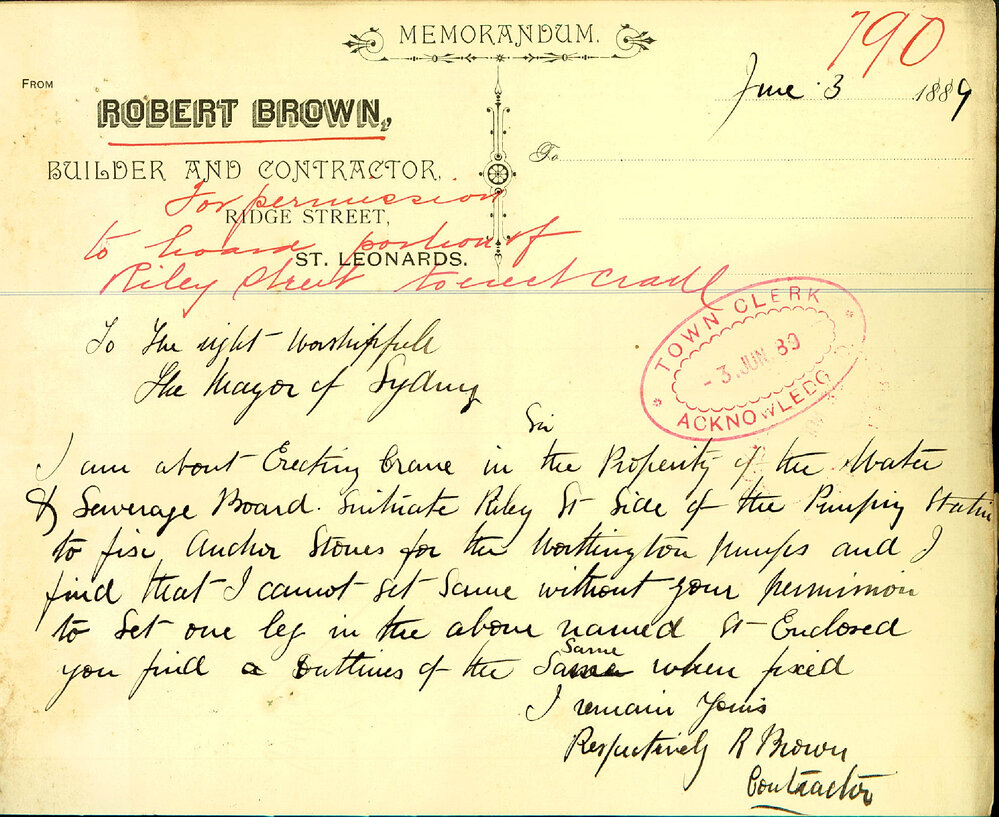 MEMORANDUM.
790
FROM
June 3 1889
ROBERT BROWN,
To
BUILDER AND CONTRACTOR,
RIDGE STREET,
ST. LEONARDS.
For permission
to hoard portion of
Riley Street to erect
TOWN CLERK
3 JUN 89
ACKNOWLEDG
To The right Worshipfull
The Mayor of Sydney
Sir
I am about Erecting Crane in the Properity of the Water
& Sewerage Board. Sintuate Riley St Side of the Pumping Station
to fix Anchor Stones for the Worthington pumps and I
find that I cannot set Same without your permission
to Set one leg in the above named St Enclosed
you find a Outlines of the Same when fixed
I remain Yours
Respectively R Brown
Contractor